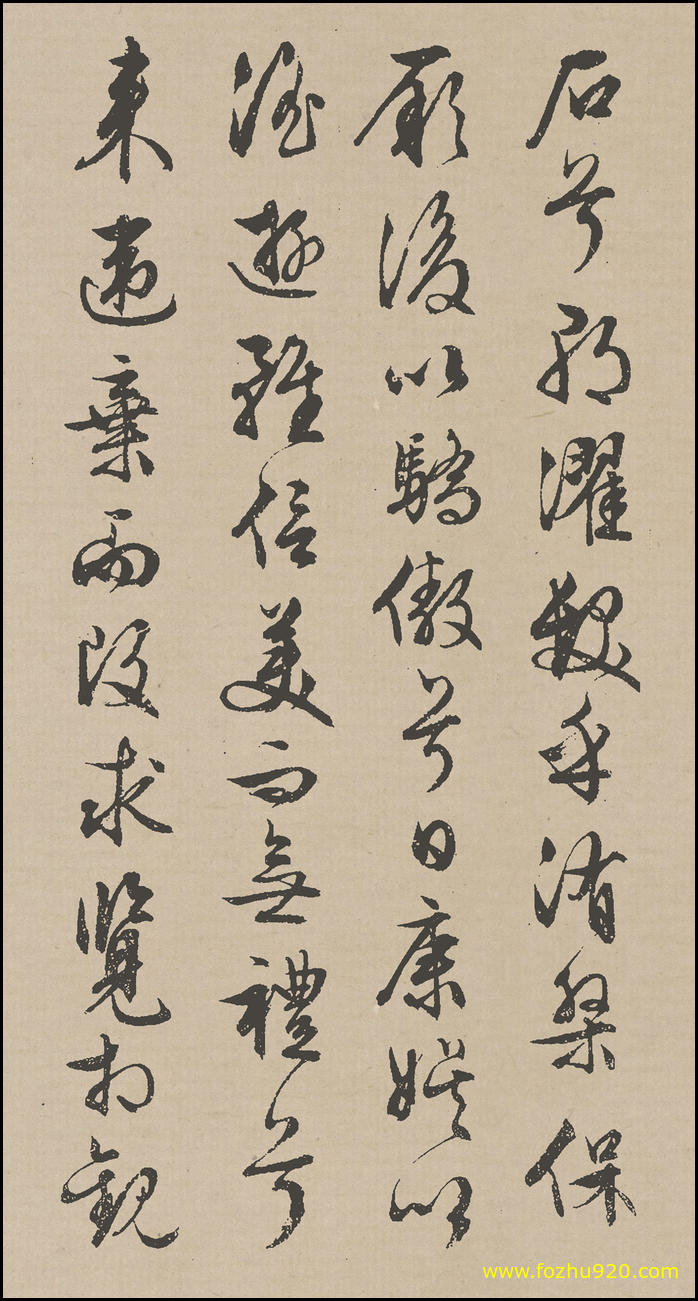 石兮朝濯髮乎洧槃保
厥後以驕傲兮日康娛以
淫遊雖信美而無禮兮
來違棄而改求覽相觀
www.fozhu920.com